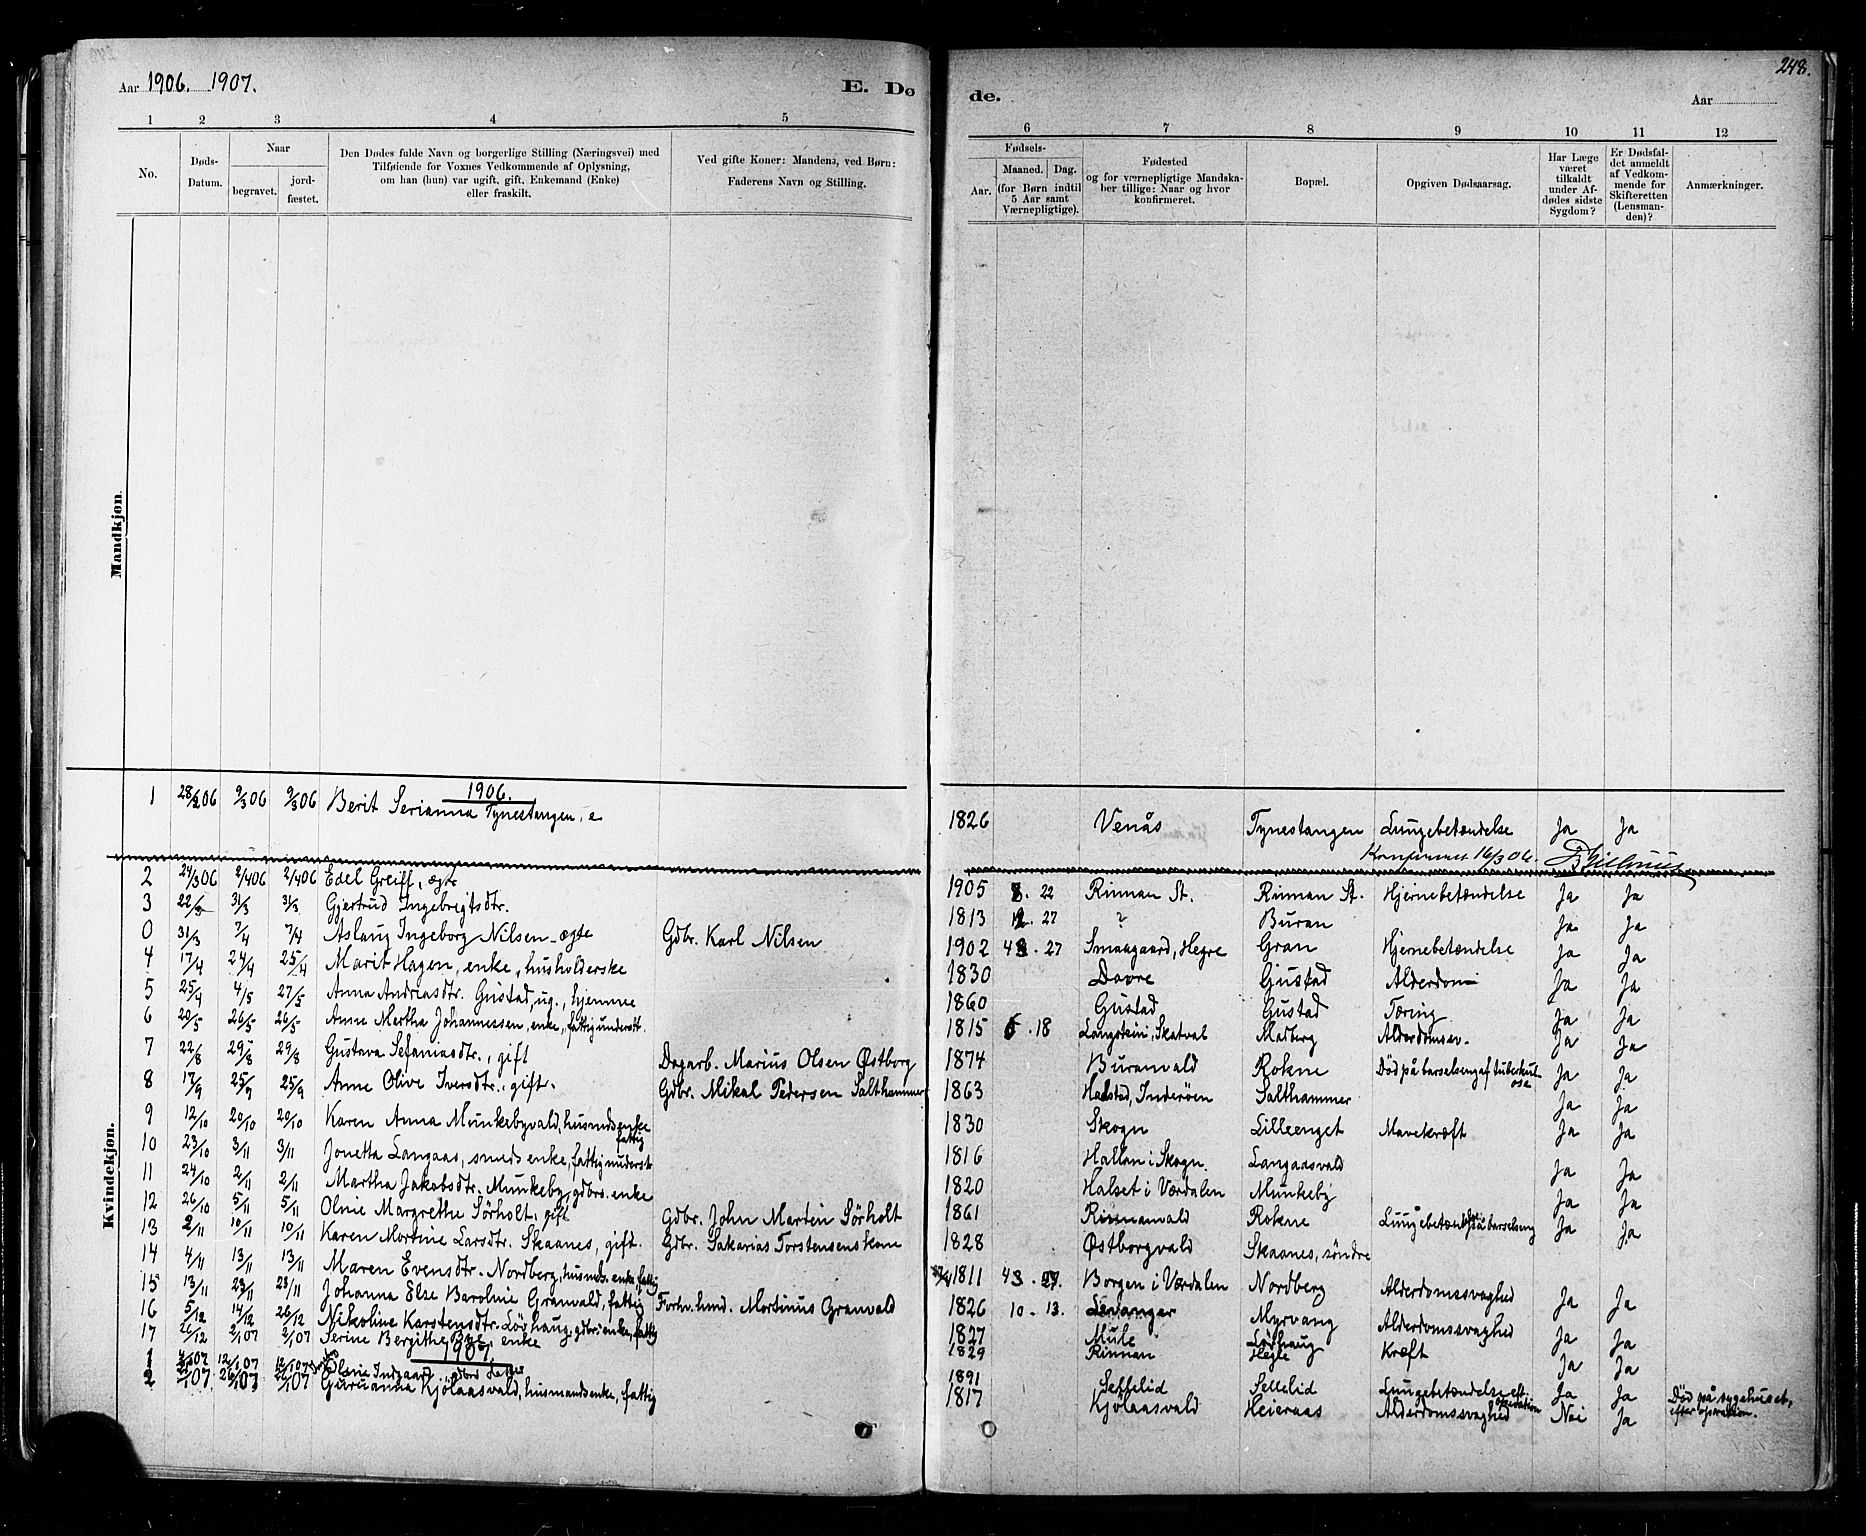 Aar 1906. 1907.
E. Dø
de.
248.
Aar
1 2 3 4 5
6 7 8 9 10 11 12
No.
Døds-Datum.
Naar
begravet.
jord-fæstet.
Den Dødes fulde Navn og borgerlige Stilling (Næringsvei) med
Tilføiende for Voxnes Vedkommende af Oplysning,
om han (hun) var ugift, gift, Enkemand (Enke)
eller fraskilt.
Ved gifte Koner: Mandens, ved Børn:
Faderens Navn og Stilling.
Fødsels-
Aar.
Maaned. Dag.
(for Børn indtil
5 Aar samt
Værnepligtige).
Fødested
og for værnepligtige Mandska-
ber tillige: Naar og hvor
konfirmeret.
Bopæl.
Opgiven Dødsaarsag.
Har Læge
været
tilkaldt
under Af-
dødes sidste
Sygdom?
Er Dødsfal-
det anmeldt
af Vedkom-
mende for
Skifteretten
(Lensman-
den)?
Anmærkninger.
Mandkjøn.
Kvindekjøn.
1906.
1 28/2 06 9/3 06 9/3 06 Berit Serianna Tynestangen, e 1826 Venås Tynestangen Lungebetændelse Ja Ja
16/3 06.
2 24/3 06 2/4 06 2/4 06 Edel Greiff, ægte 1905 22 Rinnan St. Rinnan St. Hjernebetændelse Ja Ja
3 22/3 31/3 31/3 Gjertrud Ingebrigtsdtr. 1813 27 ? Buran Ja Ja
0 31/3 7/4 7/4 Aslaug Ingeborg Nilsen, ægte Gdbr. Karl Nilsen 1902 27 Smaagaard, Hegre Gran Hjernebetændelse Ja Ja
4 17/4 24/4 25/4 Marit Hagen, enke, husholderske 1830 Dovre Gjustad Alderdom Ja Ja
5 25/4 4/5 27/5 Anna Andreasdtr. Gustad, ug., hjemme 1860 Gustad Gustad Tæring Ja Ja
6 20/5 26/5 26/5 Anne Martha Johannessen, enke, fattigunderst. 1815 6. 18 Langstein i Skatval Madberg Alderdomsv. Ja Ja
7 22/8 29/8 29/8 Gustava Sefaniasdtr., gift Dagarb. Marius Olsen Østborg 1874 Buranvald Rokne Død på barselseng af tuberkulose Ja Ja
8 17/9 25/9 25/9 Anne Olive Iversdtr., gift. Gdbr. Mikal Pedersen Salthammer 1863 Halstad, Inderøen Salthammer Ja Ja
9 12/10 20/10 20/10 Karen Anna Munkebyvald, husmdsenke fattig 1830 Skogn Lilleenget Mavekræft Ja Ja
10 23/10 3/11 3/11 Jonetta Langaas, smeds enke, fattigunderst. 1816 Hallan i Skogn. Langaasvald Ja Ja
11 24/10 2/11 2/11 Martha Jakobsdtr. Munkeby, gdbrs. enke 1820 Halset i Værdalen Munkeby Ja Ja
12 26/10 5/11 5/11 Oline Margrethe Sørholt, gift Gdbr. John Martin Sørholt 1861 Rinnanvald Rokne Lungebetændelse på barselseng Ja Ja
13 2/11 10/11 10/11 Karen Martine Larsdtr. Skaanes, gift. Gdbr. Sakarias Torstensens kone 1828 Østborgvald Skaanes, søndre
14 4/11 13/11 13/11 Maren Evensdtr. Nordberg, husmds. enke, fattig 1811 Borgen i Værdalen Nordberg Alderdomssvaghed Ja Ja
15 13/11 23/11 23/11 Johanna Else Baroline Granvald, fattig Forhv. husmd. Martinus Granvald 1826 10. 13. Levanger Myrvang Alderdomssvaghed Ja Ja
16 5/12 14/12 26/12 Nikoline Karstensdtr. Løvhaug, gdbr. enke, fattig 1827 Mule Løvhaug Kræft Ja Ja
17 26/12 2/1 07 2/1 07 Serine Bergithe Bye, enke 1829 Rinnan Hegle
1907.
1 4/1 07 12/1 07 12/1 07 Oline Indgaard 1891 Settelid Settelid Lungebetændelse eft. operation Ja Ja Død på sygehuset, efter operation.
2 07 26/1 07 07 Guruanna Kjølaasvald, husmandsenke, fattig 1817 Kjølaasvald Heieraas Alderdomssvaghed Nei Ja